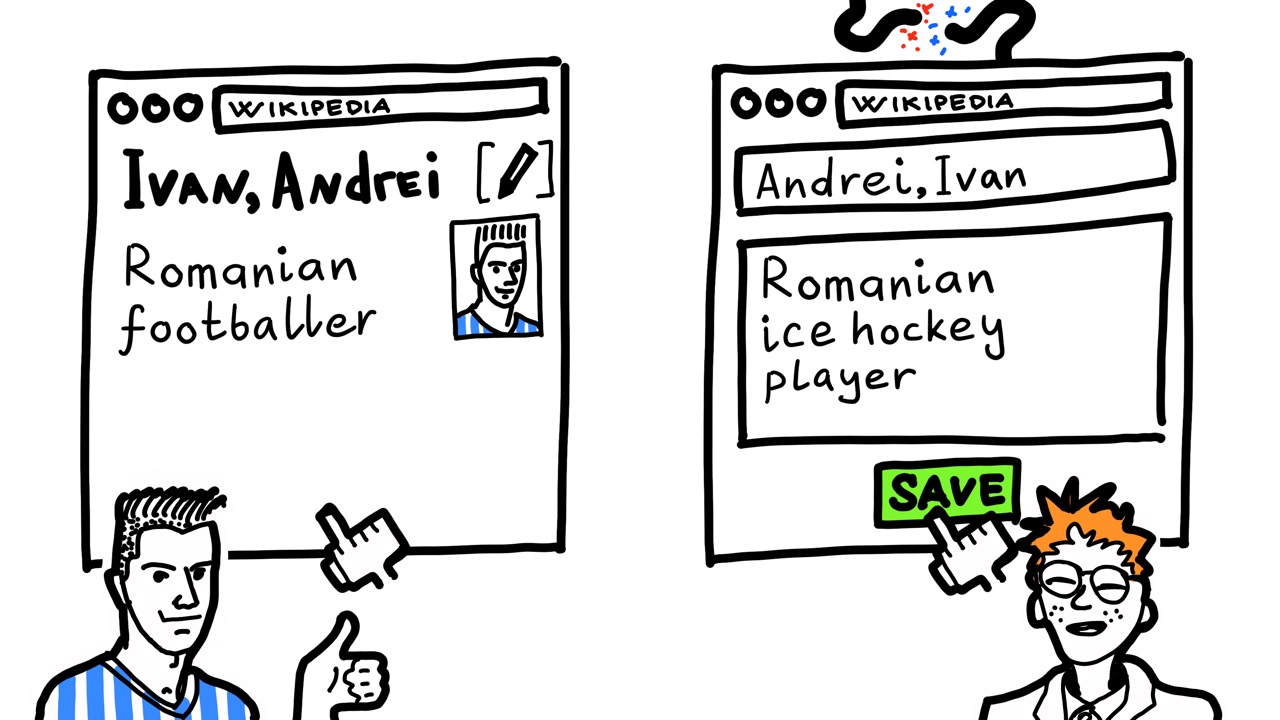 WIKIPEDIA
Ivan, Andrei
Romanian
footballer
WIKIPEDIA
Andrei, Ivan
Romanian
ice hockey
player
SAVE